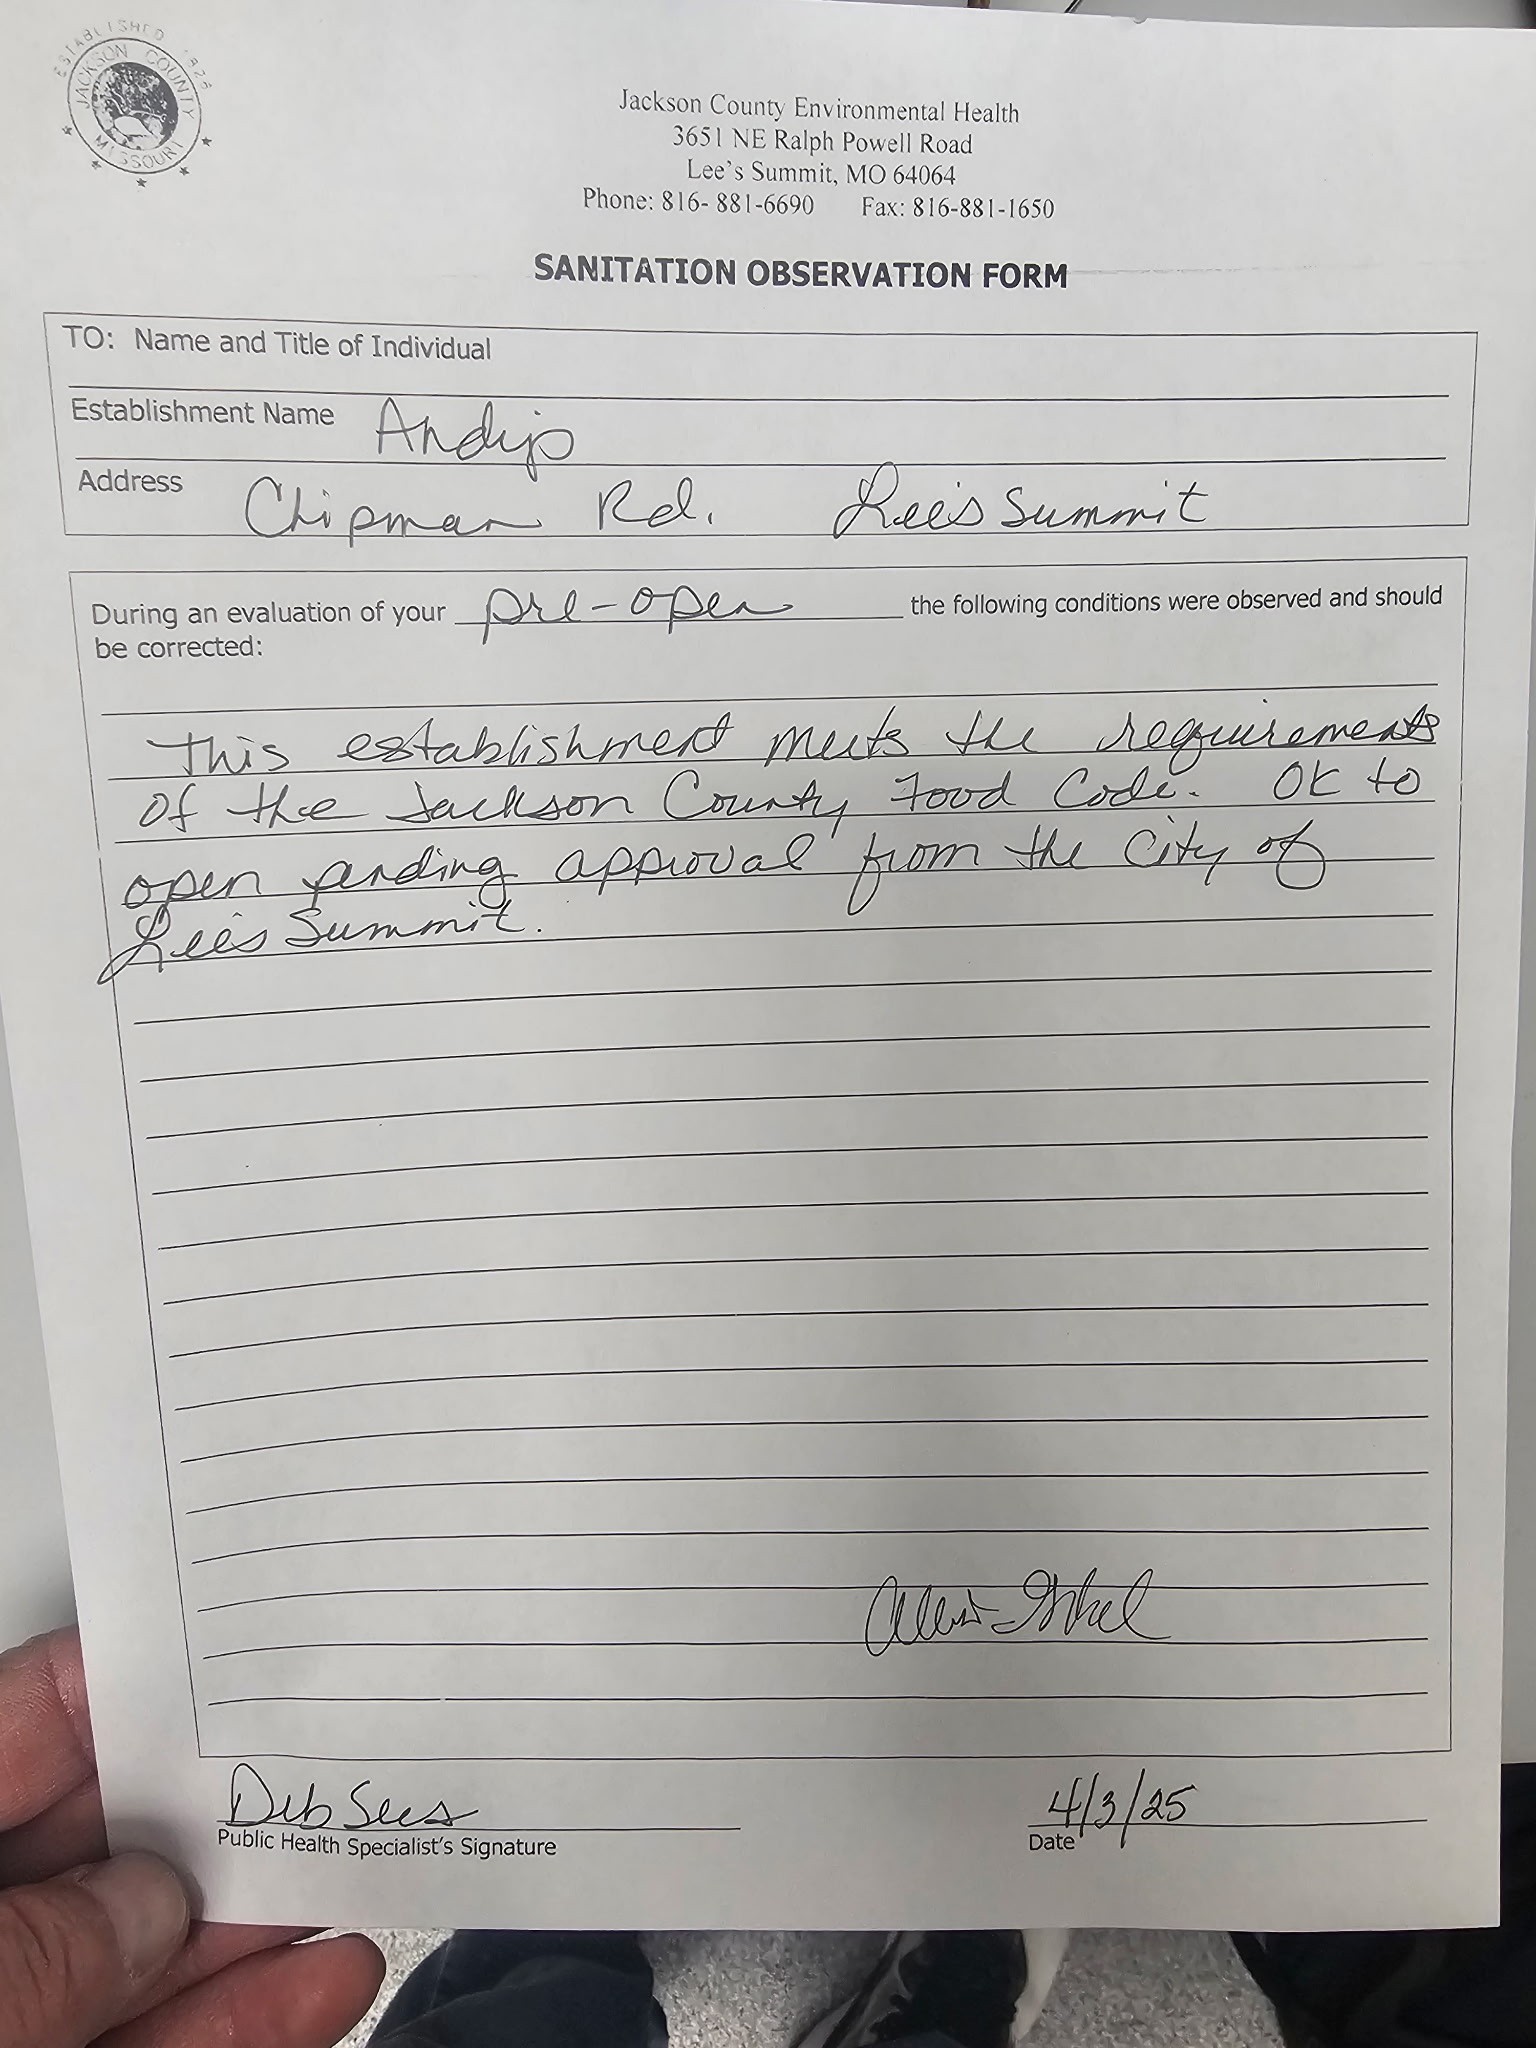 ESTABLISHED 1826
JACKSON COUNTY
MISSOURI
Jackson County Environmental Health
3651 NE Ralph Powell Road
Lee's Summit, MO 64064
Phone: 816- 881-6690 Fax: 816-881-1650
SANITATION OBSERVATION FORM
TO: Name and Title of Individual
Establishment Name Andy's
Address Chipman Rd. Lee's Summit
During an evaluation of your pre-open the following conditions were observed and should
be corrected:
This establishment meets the requirements
of the Jackson County Food Code. OK to
open pending approval from the City of
Lee's Summit.
Deb Sees
Public Health Specialist's Signature
4/3/25
Date